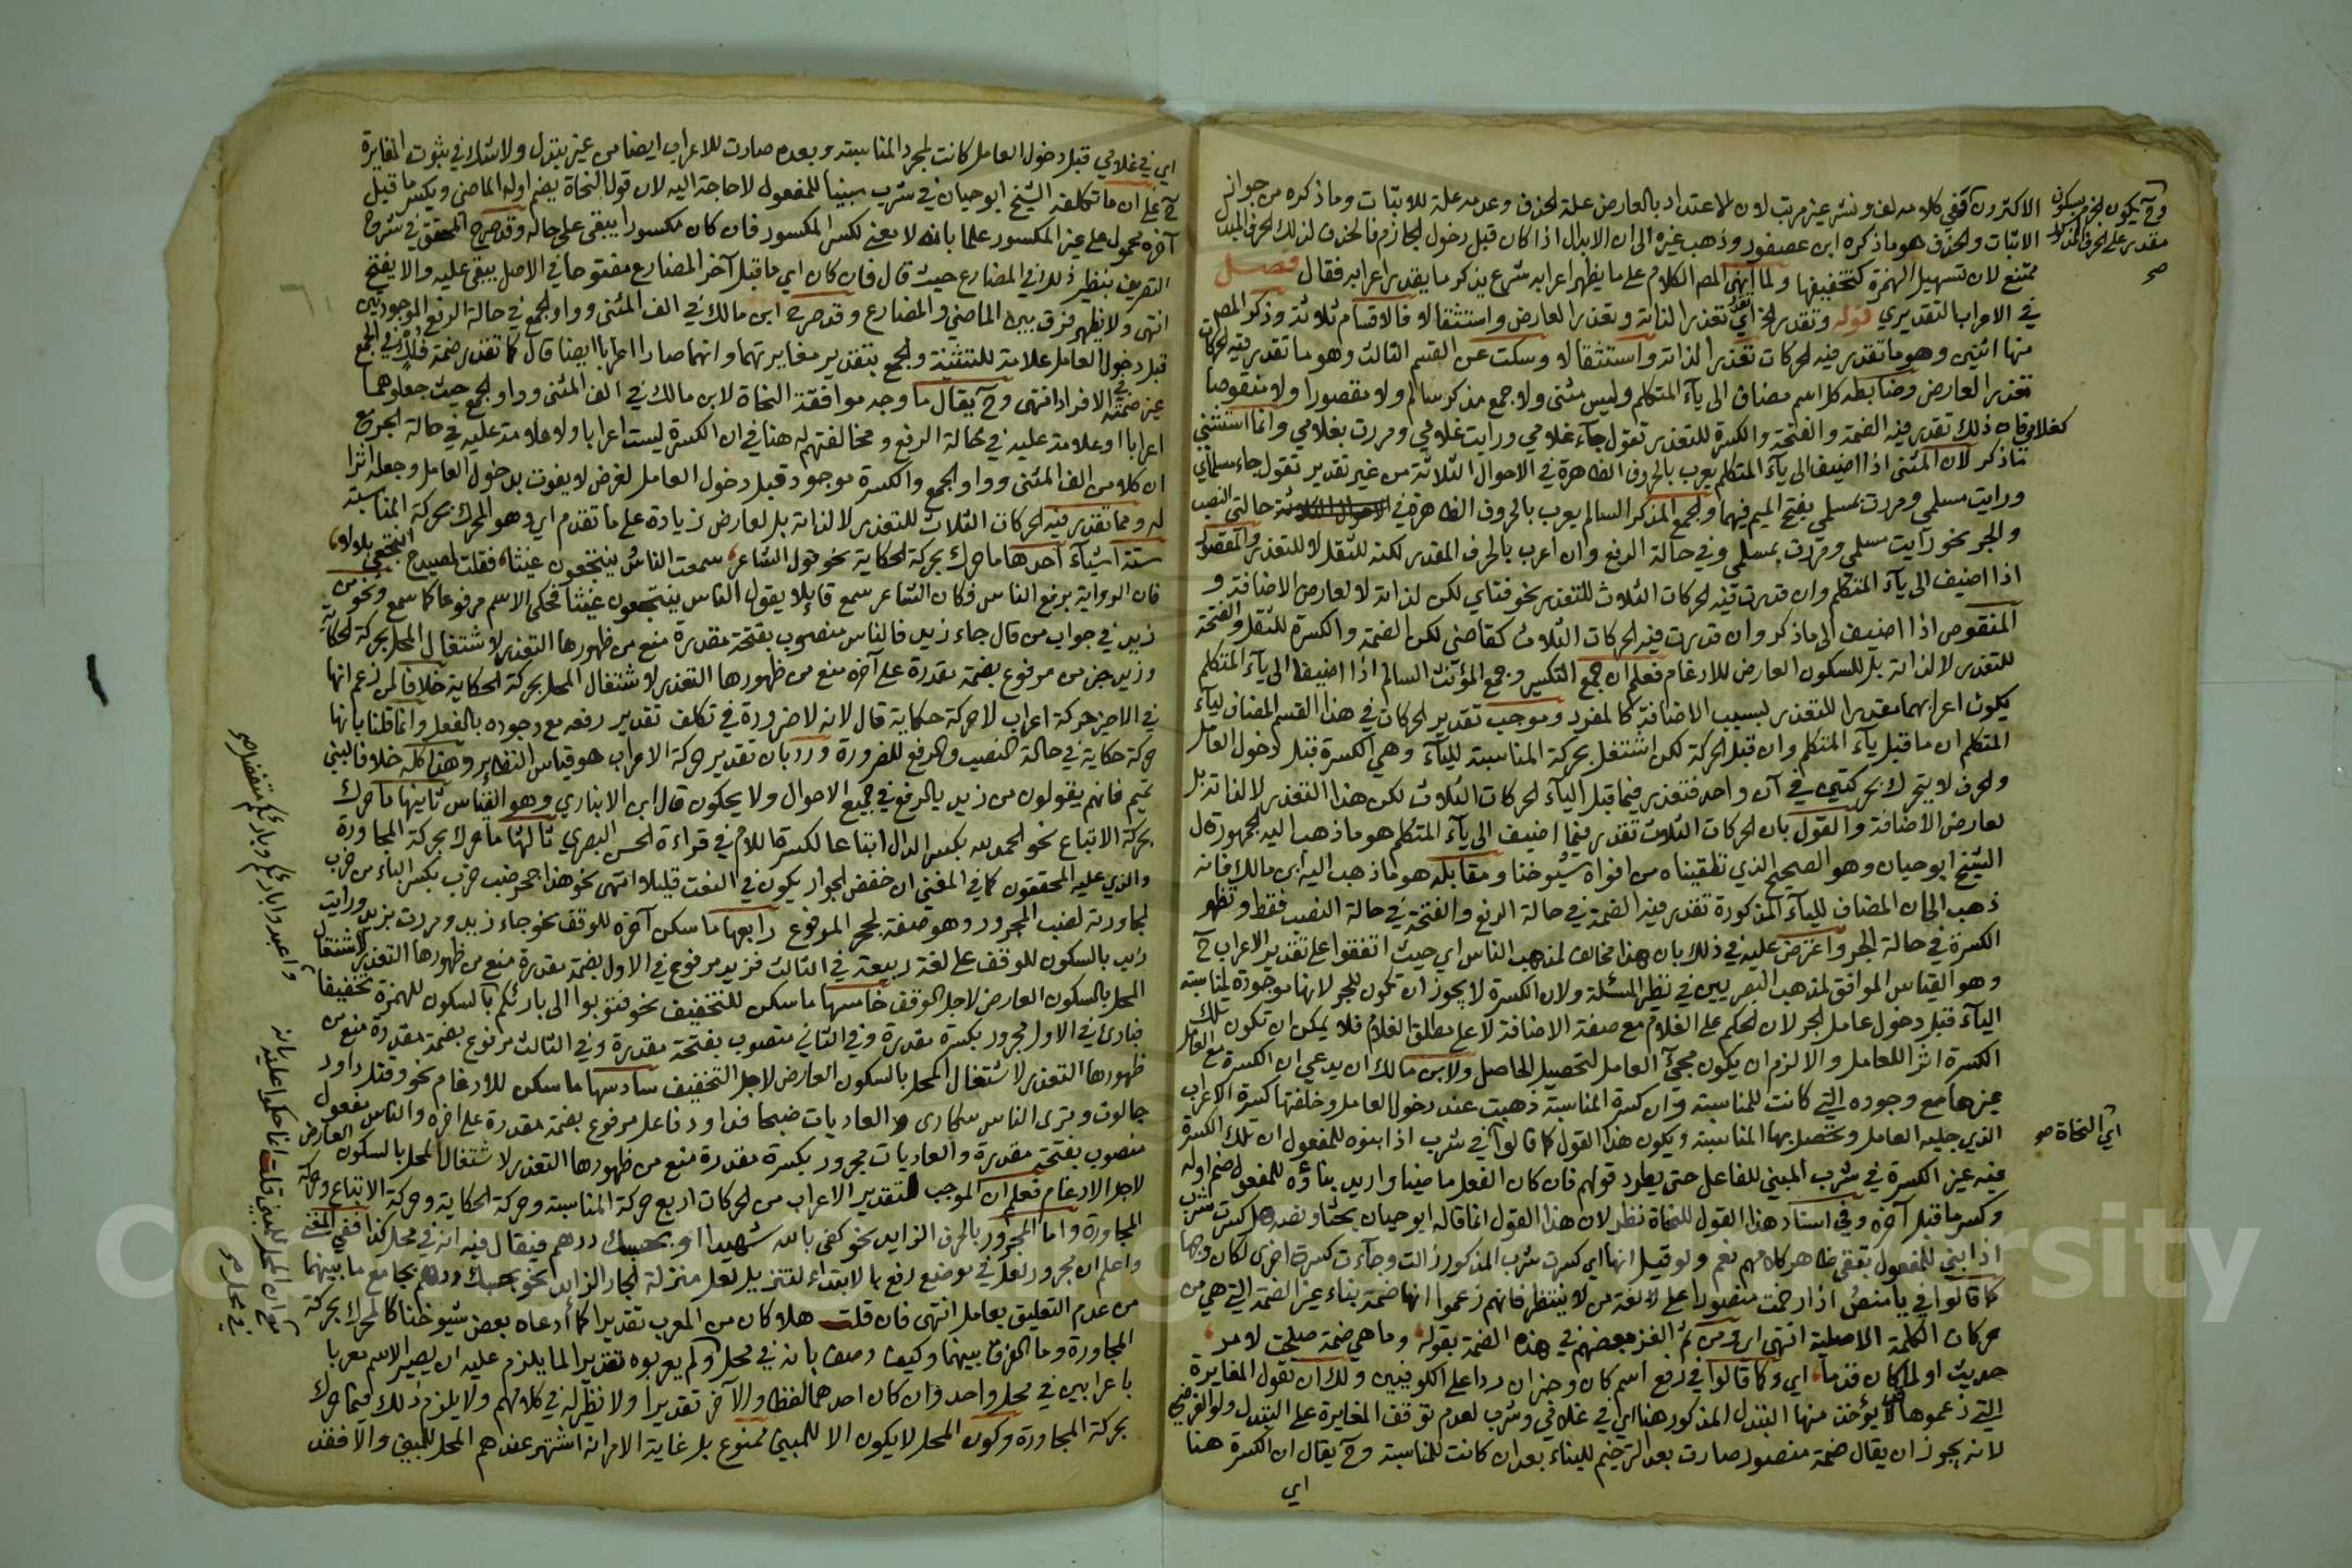 الاكثرون ففي كلامه لف ونشر غير مرتب لان الاعتداد بالعارض علة للحذف وعدمه علة للاثبات وما ذكره من جواز
الاثبات والحذف هو ما ذكره ابن عصفور وذهب غيره الى ان الابدال اذا كان قبل دخول الجازم فالحذف لذلك الحرف المبدل
ممتنع لان تسهيل الهمزة كتخفيفها ولما انهى المص الكلام على ما يظهر اعرابه شرع يذكر ما يقدر اعرابه فقال فصل
في الاعراب التقديري قوله وتقدر الخ اي تقدر تعذرا لذاته وتعذرا لعارض واستثقالا فالاقسام ثلاثة وذكر المص
منها اثنين وهو ما تقدر فيه الحركات تعذرا لذاته واستثقالا وسكت عن القسم الثالث وهو ما تقدر فيه الحركات
تعذرا لعارض وضابطه كل اسم مضاف الى ياء المتكلم وليس مثنى ولا جمع مذكر سالم ولا مقصورا ولا منقوصا
كغلامي فان ذلك تقدر فيه الضمة والفتحة والكسرة للتعذر تقول جاء غلامي ورايت غلامي ومررت بغلامي وانما استثني
ما ذكر لان المثنى اذا اضيف الى ياء المتكلم يعرب بالحروف الظاهرة في الاحوال الثلاثة من غير تقدير تقول جاء مسلماي
ورايت مسلمي ومررت بمسلمي بفتح الميم فيهما والجمع المذكر السالم يعرب بالحروف الظاهرة في حالتي النصب
والجر نحو رايت مسلمي ومررت بمسلمي وفي حالة الرفع وان اعرب بالحرف المقدر لكنه للثقل لا للتعذر والمقصور
اذا اضيف الى ياء المتكلم وان قدرت فيه الحركات الثلاث للتعذر نحو فتاي لكن لذاته لا لعارض الاضافة و
المنقوص اذا اضيف الى ما ذكر وان قدرت فيه الحركات الثلاث كقاضي لكن الضمة والكسرة للثقل والفتحة
للتعذر لا لذاته بل للسكون العارض للادغام فعلم ان جمع التكسير وجمع المؤنث السالم اذا اضيفا الى ياء المتكلم
يكون اعرابهما مقدرا للتعذر بسبب الاضافة كالمفرد وموجب تقدير الحركات في هذا القسم المضاف لياء
المتكلم ان ما قبل ياء المتكلم وان قبل الحركة لكن اشتغل بحركة المناسبة للياء وهي الكسرة قبل دخول العامل
والحرف لا يتحرك بحركتين في آن واحد فتعذر فيما قبل الياء الحركات الثلاث لكن هذا التعذر لا لذاته بل
لعارض الاضافة والقول بان الحركات الثلاث تقدر فيما اضيف الى ياء المتكلم هو ما ذهب اليه الجمهور قال
الشيخ ابو حيان وهو الصحيح الذي تلقيناه من افواه شيوخنا ومقابله هو ما ذهب اليه ابن مالك فانه
ذهب الى ان المضاف للياء المذكورة تقدر فيه الضمة في حالة الرفع والفتحة في حالة النصب فقط وتظهر
الكسرة في حالة الجر واعترض عليه في ذلك بان هذا مخالف لمذهب الناس اي حيث اتفقوا على تقدير الاعراب ح
وهو القياس الموافق لمذهب البصريين في نظير المسئلة ولان الكسرة لا يجوز ان تكون للجر لانها موجودة لمناسبة
الياء قبل دخول عامل الجر لان الحكم على الغلام مع صفة الاضافة لا على مطلق الغلام فلا يمكن ان تكون تلك
الكسرة اثرا للعامل والا لزم ان يكون مجيئ العامل لتحصيل الحاصل ولابن مالك ان يدعي ان الكسرة مع العامل
غيرها مع وجوده التي كانت للمناسبة وان كسرة المناسبة ذهبت عند دخول العامل وخلفتها كسرة الاعراب
الذي جلبه العامل وتحصل بها المناسبة ويكون هذا القول كما قالوا في شرب اذا بنوه للمفعول ان تلك الكسرة
فيه غير الكسرة في شرب المبني للفاعل حتى يطرد قولهم فان كان الفعل ماضيا واريد بناؤه للمفعول ضم اوله
وكسر ما قبل آخره وفي اسناد هذا القول للنحاة نظر لان هذا القول انما قاله ابو حيان بحثا ونصه هل كسرت شرب
اذا بني للمفعول يقتضي ظاهر كلامهم نعم ولو قيل انها اي كسرت شرب المذكور زالت وجاءت كسرة اخرى لكان وجها
كما قالوا في يا منص اذا رخمت منصورا على لغة من لا ينتظر فانهم زعموا انها ضمة بناء غير الضمة التي هي من
حركات الكلمة الاصلية انتهى اي ومن ثم الغز بعضهم في هذه الضمة بقوله وما هي ضمة صلحت لامر
حديث اولما كان قدما اي وكما قالوا في رفع اسم كان وخبر ان ردا على الكوفيين ولك ان تقول المغايرة
التي زعموها لا يؤخذ منها التبدل المذكور هنا اي في غلامي وشرب لعدم توقف المغايرة على التبدل ولو الفرضي
لانه يجوز ان يقال ضمة منصور صارت بعد الترخيم للبناء بعد ان كانت للمناسبة وح يقال ان الكسرة هنا
اي
وح يكون الجزم بسكون
مقدر على الحرف المذكور
صح
اي النحاة صح
اي في غلامي قبل دخول العامل كانت لمجرد المناسبة وبعده صارت للاعراب ايضا من غير تبدل ولا شك في ثبوت المغايرة
ح على ان ما تكلفه الشيخ ابو حيان في شرب مبنيا للمفعول لا حاجة اليه لان قول النحاة يضم اول الماضي ويكسر ما قبل
آخره محمول على غير المكسور علما بانه لا معنى لكسر المكسور فان كان مكسورا يبقى على حاله وقد صرح المحقق في شرح
التصريف بنظير ذلك في المضارع حيث قال فان كان اي ما قبل آخر المضارع مفتوحا في الاصل يبقى عليه والا يفتح
انتهى ولا يظهر فرق بين الماضي والمضارع وقد صرح ابن مالك في الف المثنى وواو الجمع في حالة الرفع الموجودتين
قبل دخول العامل علامة للتثنية والجمع بتقدير مغايرتهما وانهما صارا اعرابا ايضا قال كما تقدر ضمة فلك في الجمع
غير ضمته في الافراد انتهى وح يقال ما وجه موافقة النحاة لابن مالك في الف المثنى وواو الجمع حيث جعلوهما
اعرابا او علامة عليه في حالة الرفع ومخالفتهم له هنا في ان الكسرة ليست اعرابا ولا علامة عليه في حالة الجر مع
ان كلا من الف المثنى وواو الجمع والكسرة موجود قبل دخول العامل لغرض لا يفوت بدخول العامل وجعله اثرا
له ومما تقدر فيه الحركات الثلاث للتعذر لا لذاته بل لعارض زيادة على ما تقدم اي وهو المحرك بحركة المناسبة
ستة اشياء احدها ما حرك بحركة الحكاية نحو قول الشاعر سمعت الناس ينتجعون غيثا فقلت لصيدح انتجعي بلالا
فان الرواية برفع الناس وكان الشاعر سمع قائلا يقول الناس ينتجعون غيثا فحكى الاسم مرفوعا كما سمع ونحو من
زيد في جواب من قال جاء زيد فالناس منصوب بفتحة مقدرة منع من ظهورها التعذر لاشتغال المحل بحركة الحكاية
وزيد خبر من مرفوع بضمة مقدرة على آخره منع من ظهورها التعذر لاشتغال المحل بحركة الحكاية خلافا لمن زعم انها
في الاخير حركة اعراب لا حركة حكاية قال لانه لا ضرورة في تكلف تقدير رفعه مع وجوده بالفعل وانما قلنا بانها
حركة حكاية في حالة النصب والرفع للضرورة ورد بان تقدير حركة الاعراب هو قياس النظاير وهذا كله خلافا لبني
تميم فانهم يقولون من زيد بالرفع في جميع الاحوال ولا يحكون قال ابن الانباري وهو القياس ثانيها ما حرك
بحركة الاتباع نحو الحمد لله بكسر الدال اتباعا لكسرة اللام في قراءة الحسن البصري ثالثها ما حرك بحركة المجاورة
والذي عليه المحققون كما في المغني ان خفض الجوار يكون في النعت قليلا انتهى نحو هذا جحر ضب خرب بكسر الباء من خرب
لمجاورته لضب المجرور وهو صفة لجحر المرفوع رابعها ما سكن آخره للوقف نحو جاء زيد ومررت بزيد ورايت
زيد بالسكون للوقف على لغة ربيعة في الثالث فزيد مرفوع في الاول بضمة مقدرة منع من ظهورها التعذر لاشتغال
المحل بالسكون العارض لاجل الوقف خامسها ما سكن للتخفيف نحو فتوبوا الى بارئكم بالسكون للهمزة تخفيفا
فبارئ في الاول مجرور بكسرة مقدرة وفي الثاني منصوب بفتحة مقدرة وفي الثالث مرفوع بضمة مقدرة منع من
ظهورها التعذر لاشتغال المحل بالسكون العارض لاجل التخفيف سادسها ما سكن للادغام نحو وقتل داود
جالوت وترى الناس سكارى والعاديات ضبحا فداود فاعل مرفوع بضمة مقدرة على اخره والناس مفعول
منصوب بفتحة مقدرة والعاديات مجرور بكسرة مقدرة منع من ظهورها التعذر لاشتغال المحل بالسكون العارض
لاجل الادغام فعلم ان الموجب لتقدير الاعراب من الحركات اربع حركة المناسبة وحركة الحكاية وحركة الاتباع وحركة
المجاورة واما المجرور بالحرف الزايد نحو كفى بالله شهيدا او بحسبك درهم فيقال فيه انه في محل كذا ففي المغني
واعلم ان مجرور لعل في موضع رفع بالابتداء لتنزيل لعل منزلة الجار الزايد نحو بحسبك درهم بجامع ما بينهما
من عدم التعليق بعامل انتهى فان قلت هلا كان من المعرب تقديرا كما ادعاه بعض شيوخنا كالمحرك بحركة
المجاورة وما الفرق بينهما وكيف وصف بانه في محل ولم يعربوه تقديرا لما يلزم عليه ان يصير الاسم معربا
باعرابين في محل واحد وان كان احدهما لفظا والآخر تقديرا ولا نظير له في كلامهم ولا يلزم ذلك فيما حرك
بحركة المجاورة وكون المحل لا يكون الا للمبني ممنوع بل غاية الامر انه اشتهر عندهم المحل للمبني والا فقد
واعبدوا بارئكم وبارئكم متفضل صح
مع ان المحل للمبني قلت انما حكموا عليه بانه
في محل صح